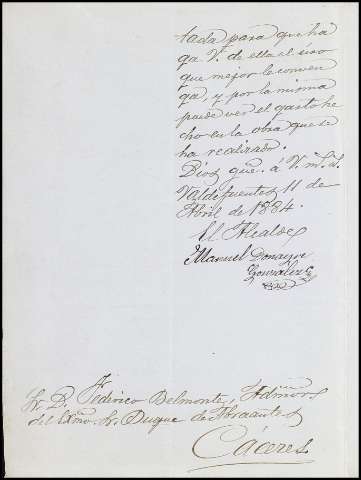 tada para que ha
ga V. de ella el uso
que mejor le conven
ga, y por la misma
puede ver el gasto he
cho en la obra que se
ha realizado.
Dios gue. a V. m. a.
Valdefuentes 11 de
Abril de 1884.
El Alcalde
Manuel Donayre
Gonzalez
Sr. D. Federico Belmonte, Admor
del Exmo. Sr. Duque de Abrantes
Cáceres